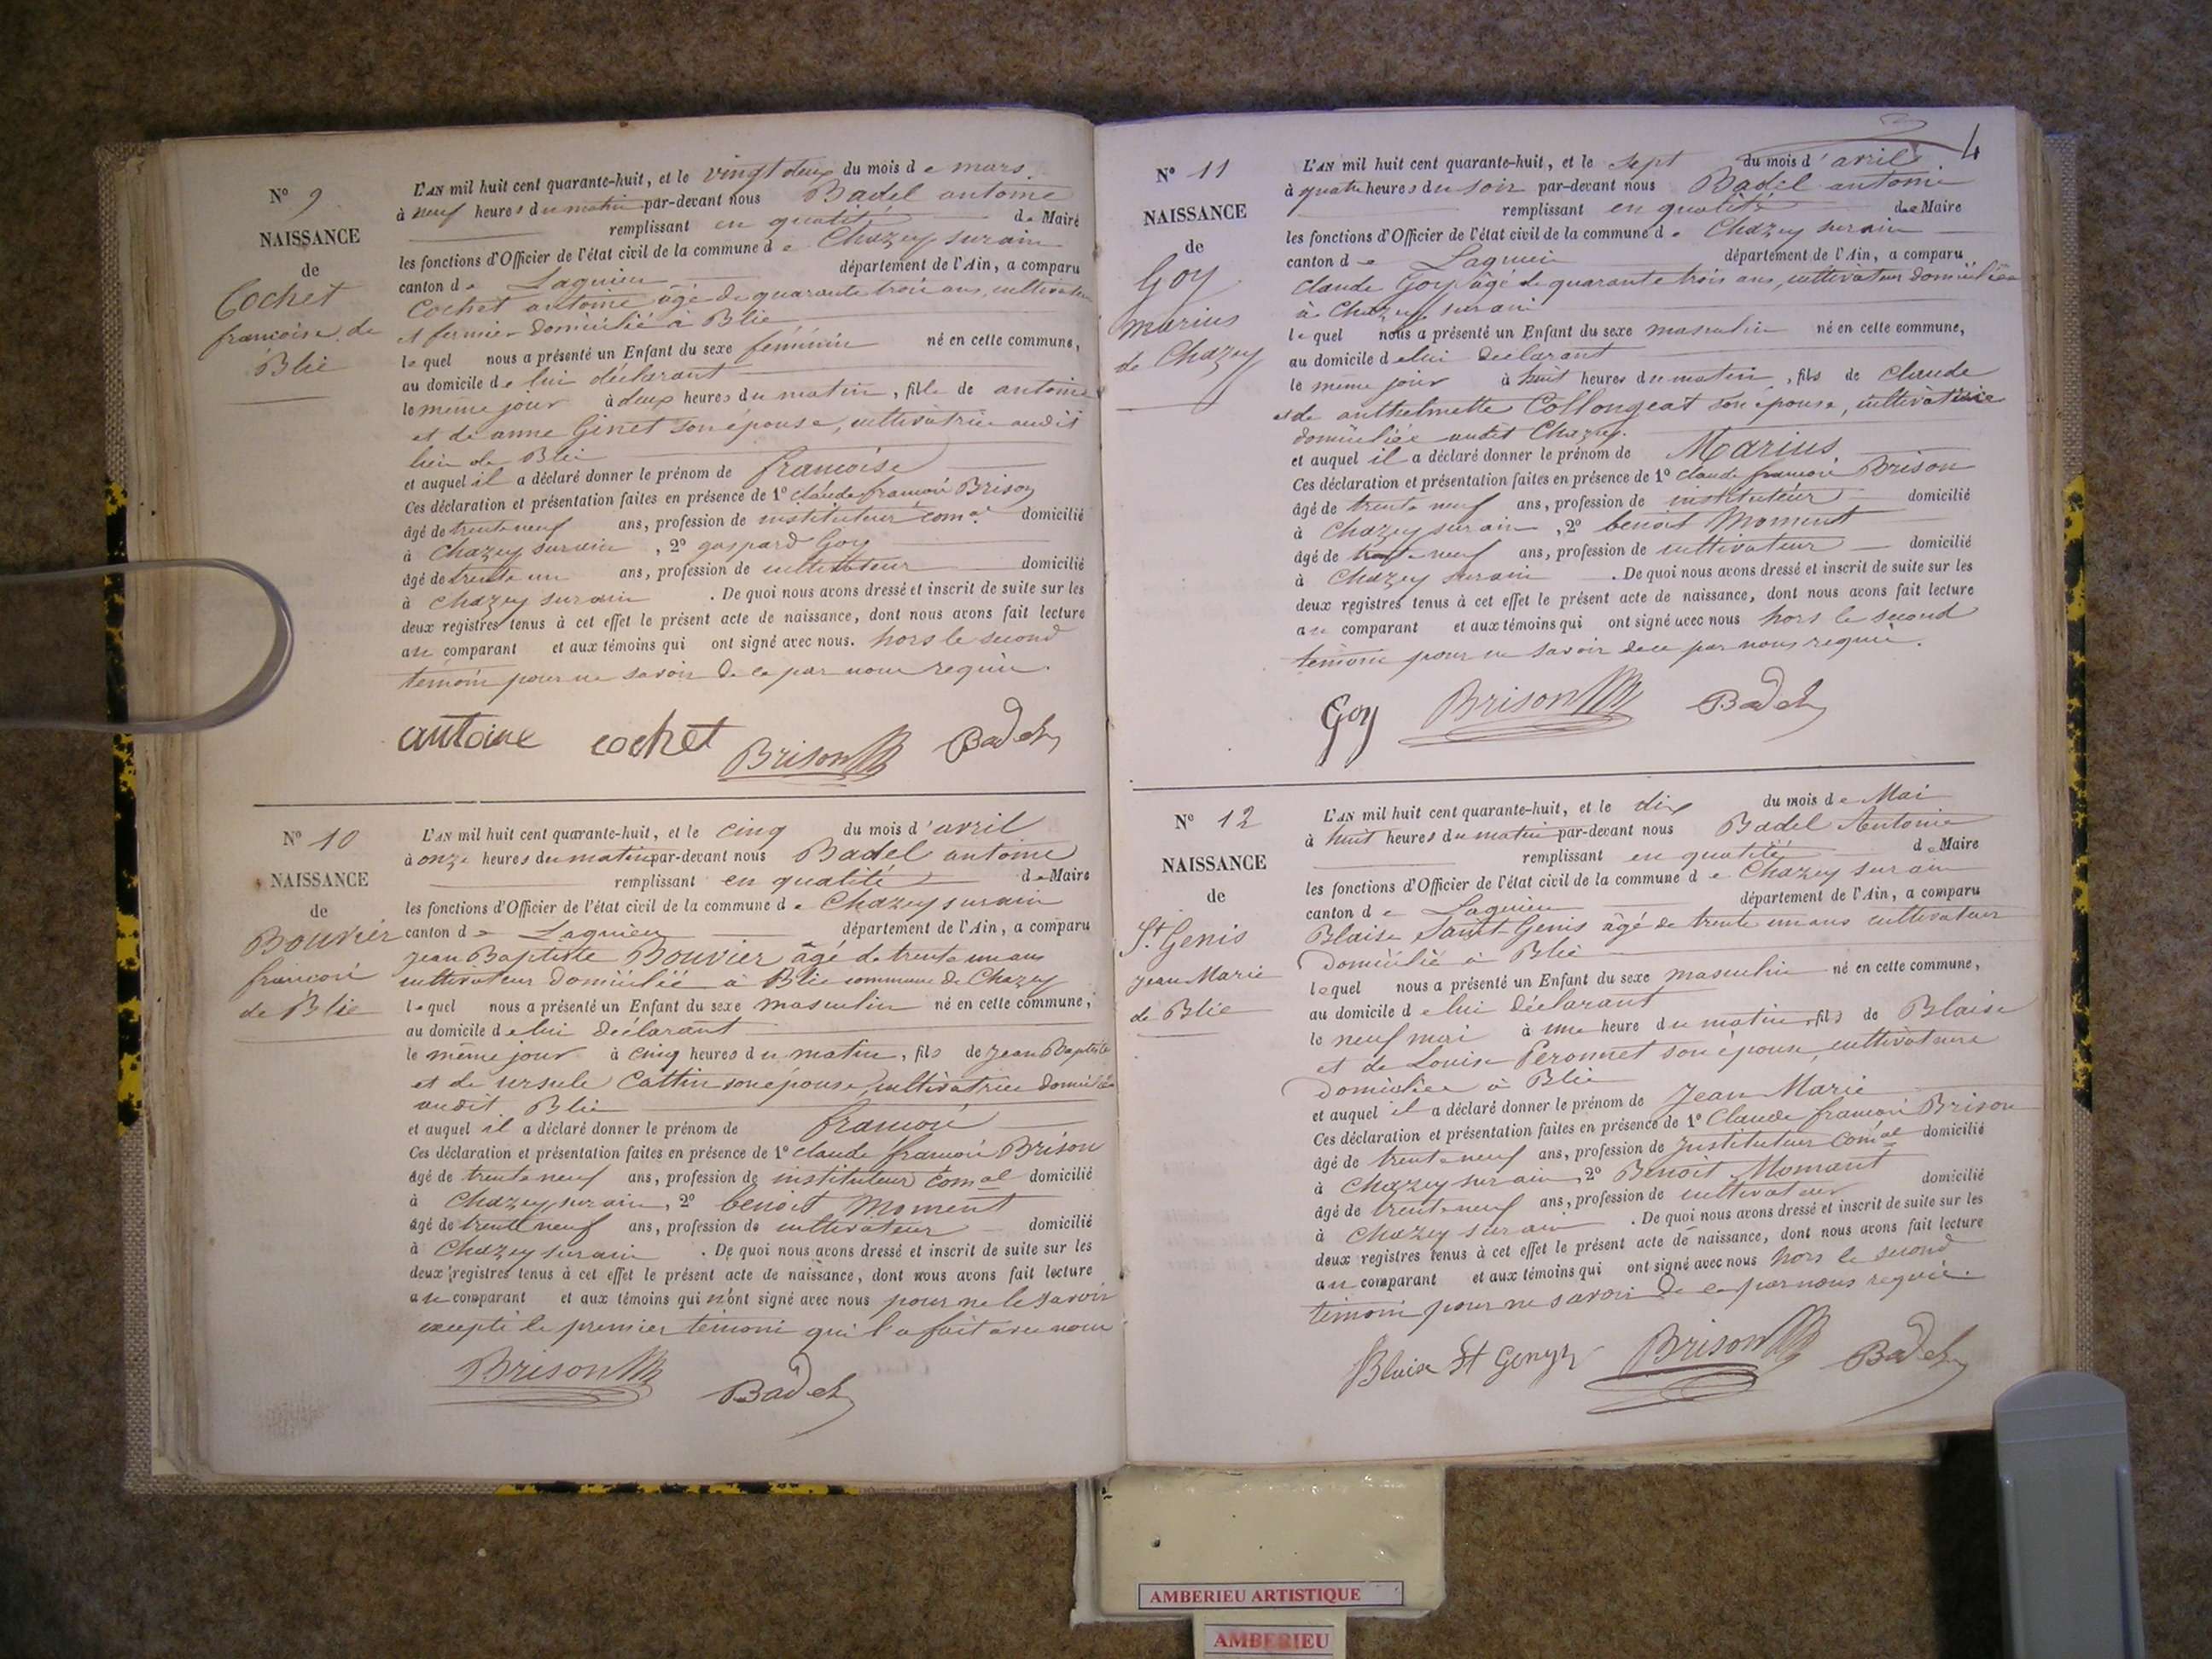 N° 9
NAISSANCE
de
Cochet
francoise de
Blie
L'AN mil huit cent quarante-huit, et le vingt deux du mois de mars.
à neuf heures du matin par-devant nous Badel antoine
remplissant en qualité de Maire
les fonctions d'Officier de l'état civil de la commune de Chazey sur ain
canton de Lagnieu département de l'Ain, a comparu
Cochet antoine âgé de quarante trois ans, cultivateur
et fermier domicilié à Blie
lequel nous a présenté un Enfant du sexe féminin né en cette commune,
au domicile de lui déclarant
le même jour à deux heures du matin, fille de antoine
et de anne Ginet son épouse, cultivatrice audit
lieu de Blie
et auquel il a déclaré donner le prénom de francoise
Ces déclaration et présentation faites en présence de 1° claude francois Brison
âgé de trente neuf ans, profession de instituteur comal domicilié
à Chazey sur ain, 2° gaspard Goy
âgé de trente un ans, profession de cultivateur domicilié
à Chazey sur ain. De quoi nous avons dressé et inscrit de suite sur les
deux registres tenus à cet effet le présent acte de naissance, dont nous avons fait lecture
au comparant et aux témoins qui ont signé avec nous. hors le second
témoin pour ne savoir de ce par nous requis.
antoine cochet Brison Badel
N° 10
NAISSANCE
de
Bouvier
francois
de Blie
L'AN mil huit cent quarante-huit, et le cinq du mois d'avril
à onze heures du matin par-devant nous Badel antoine
remplissant en qualité de Maire
les fonctions d'Officier de l'état civil de la commune de Chazey sur ain
canton de Lagnieu département de l'Ain, a comparu
Jean Baptiste Bouvier âgé de trente un ans
cultivateur domicilié à Blie commune de Chazey
lequel nous a présenté un Enfant du sexe masculin né en cette commune,
au domicile de lui déclarant
le même jour à cinq heures du matin, fils de Jean Baptiste
et de ursule Cattin son épouse, cultivatrice domiciliée
audit Blie
et auquel il a déclaré donner le prénom de francois
Ces déclaration et présentation faites en présence de 1° claude francois Brison
âgé de trente neuf ans, profession de instituteur comal domicilié
à Chazey sur ain, 2° benoit Moment
âgé de trente neuf ans, profession de cultivateur domicilié
à Chazey sur ain. De quoi nous avons dressé et inscrit de suite sur les
deux registres tenus à cet effet le présent acte de naissance, dont nous avons fait lecture
au comparant et aux témoins qui n'ont signé avec nous pour ne le savoir
excepté le premier témoin qui l'a fait avec nous
Brison Badel
4
N° 11
NAISSANCE
de
Goy
marius
de Chazey
L'AN mil huit cent quarante-huit, et le sept du mois d'avril
à quatre heures du soir par-devant nous Badel antoine
remplissant en qualité de Maire
les fonctions d'Officier de l'état civil de la commune de Chazey sur ain
canton de Lagnieu département de l'Ain, a comparu
claude Goy âgé de quarante trois ans, cultivateur domicilié
à Chazey sur ain
lequel nous a présenté un Enfant du sexe masculin né en cette commune,
au domicile de lui déclarant
le même jour à huit heures du matin, fils de claude
et de anthelmette Collongeat son épouse, cultivatrice
domiciliée audit Chazey.
et auquel il a déclaré donner le prénom de Marius
Ces déclaration et présentation faites en présence de 1° claude francois Brison
âgé de trente neuf ans, profession de instituteur domicilié
à Chazey sur ain, 2° benoit Moment
âgé de trente neuf ans, profession de cultivateur domicilié
à Chazey sur ain. De quoi nous avons dressé et inscrit de suite sur les
deux registres tenus à cet effet le présent acte de naissance, dont nous avons fait lecture
au comparant et aux témoins qui ont signé avec nous hors le second
témoin pour ne savoir de ce par nous requis.
Goy Brison Badel
N° 12
NAISSANCE
de
St Genis
Jean Marie
de Blie
L'AN mil huit cent quarante-huit, et le dix du mois de Mai
à huit heures du matin par-devant nous Badel Antoine
remplissant en qualité de Maire
les fonctions d'Officier de l'état civil de la commune de Chazey sur ain
canton de Lagnieu département de l'Ain, a comparu
Blaise Saint-Genis âgé de trente un ans cultivateur
domicilié à Blie
lequel nous a présenté un Enfant du sexe masculin né en cette commune,
au domicile de lui déclarant
le neuf mai à une heure du matin, fils de Blaise
et de Louise Peronnet son épouse, cultivatrice
domiciliée à Blie
et auquel il a déclaré donner le prénom de Jean Marie
Ces déclaration et présentation faites en présence de 1° Claude francois Brison
âgé de trente neuf ans, profession de Instituteur Comal domicilié
à Chazey sur ain, 2° Benoit Momant
âgé de trente neuf ans, profession de cultivateur domicilié
à Chazey sur ain. De quoi nous avons dressé et inscrit de suite sur les
deux registres tenus à cet effet le présent acte de naissance, dont nous avons fait lecture
au comparant et aux témoins qui ont signé avec nous hors le second
témoin pour ne savoir de ce par nous requis.
Blaise St Genys Brison Badel
AMBERIEU ARTISTIQUE
AMBERIEU